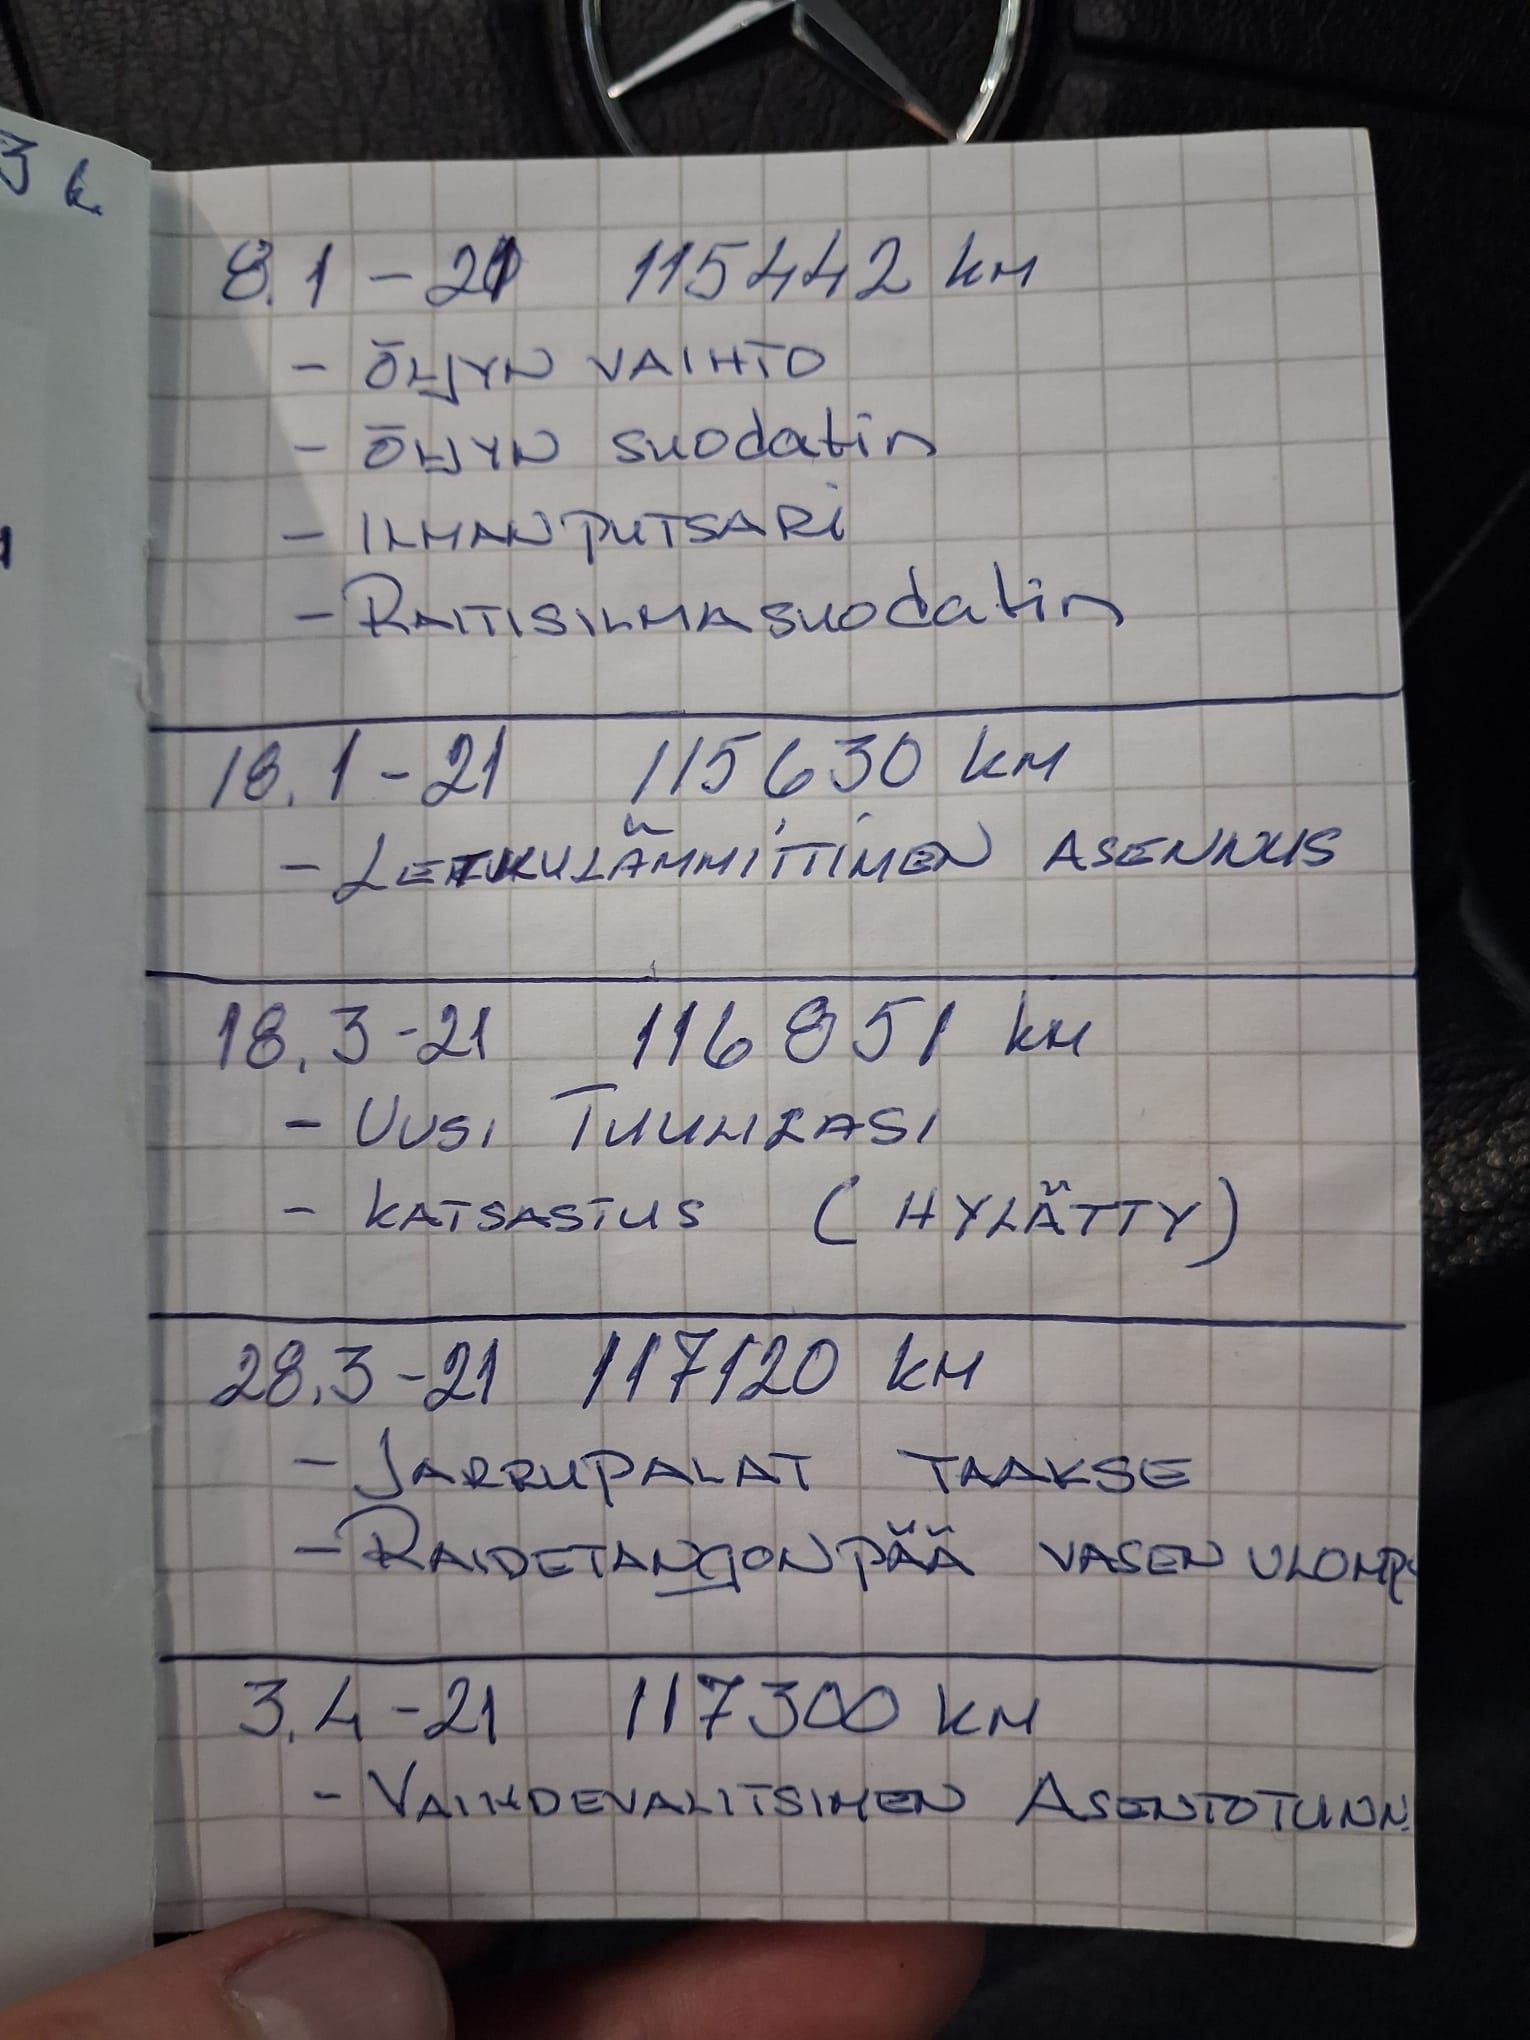 3 k
8.1 - 21 115442 km
- ÖLJYN VAIHTO
- ÖLJYN suodatin
- ILMANPUTSARI
- RAITISILMASUOdatin
18.1 - 21 115630 km
- LETKULÄMMITTIMEN ASENNUS
18.3 - 21 116851 km
- UUSI TUULILASI
- KATSASTUS (HYLÄTTY)
28.3 - 21 117120 KM
- JARRUPALAT TAAKSE
- RAIDETANGONPÄÄ VASEN ULOMP
3.4 - 21 117300 KM
- VAIHDEVALITSIMEN ASENTOTUNN.